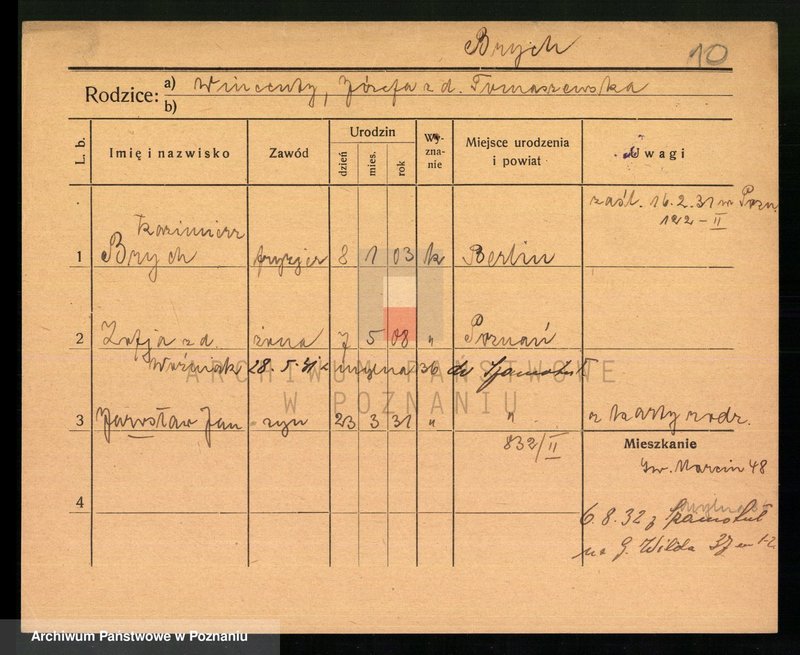 Brych
10
Rodzice: a) Wincenty, Józefa z d. Tomaszewska
b)
L. b.
Imię i nazwisko
Zawód
Urodzin
dzień
mies.
rok
Wy-
zna-
nie
Miejsce urodzenia
i powiat
Uwagi
zaśl. 16.2.31 w Pozn.
122-II
Kazimierz
1 Brych fryzjer 8 1 03 k Berlin
2 Zofja z d. żona 7 5 08 " Poznań
Woźniak 28.5.31 do Szamotuł
ARCHIWUM PAŃSTWOWE
W POZNANIU
3 Jarosław Jan syn 23 3 31 " " z karty rodz.
832/II
Mieszkanie
Św. Marcin 48
4
6.8.32 z Szamotuł
na G. Wilda 37 m
Archiwum Państwowe w Poznaniu